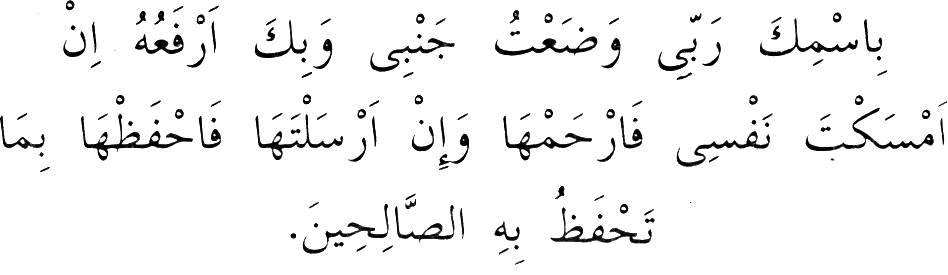 بِاسْمِكَ رَبِّي وَضَعْتُ جَنْبِى وَبِكَ اَرْفَعُهُ اِنْ
اَمْسَكْتَ نَفْسِى فَارْحَمْهَا وَإِنْ اَرْسَلْتَهَا فَاحْفَظْهَا بِمَا
تَحْفَظُ بِهِ الصَّالِحِينَ.